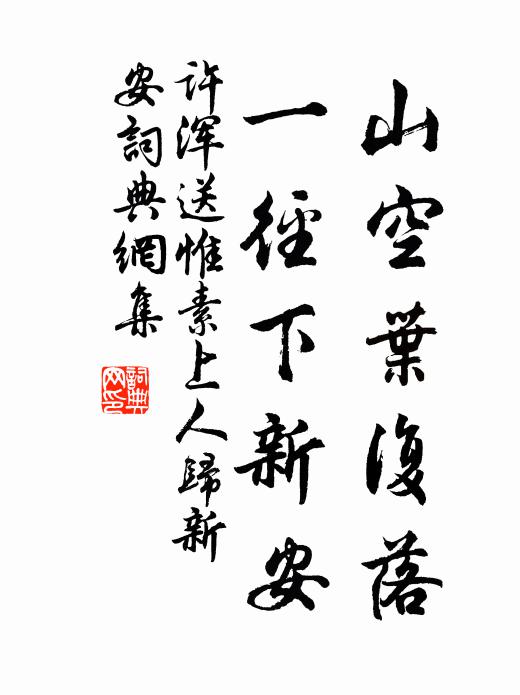 山空葉復落
一徑下新安
許渾送惟素上人歸新
安詞典網集
詞典
网印